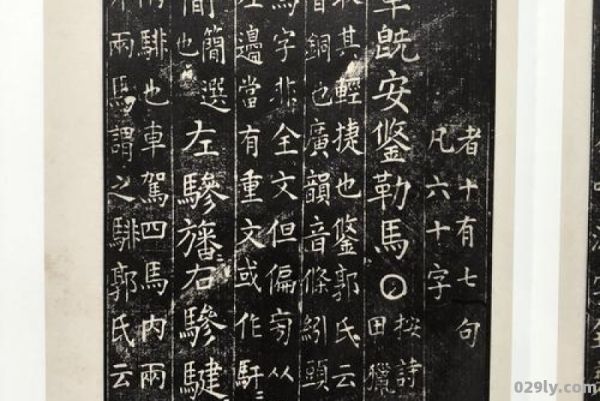 者十有七句
凡六十字
車旣安鋚勒馬〇
按詩
田獵
其輕捷也鋚郭氏云
銅也廣韻音條紉頭
字非全文但偏旁从
邊當有重文或作馯
簡選
也
左驂旛〻右驂騝
騑也車駕四馬內兩
兩馬謂之騑郭氏云
029ly.com